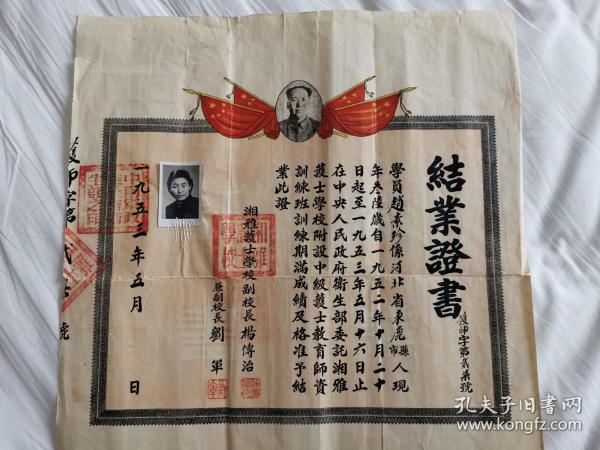 結業證書
護師字第貳柒號
學員趙素珍係河北省束鹿縣市人現
年叁陸歲自一九五二年十月二十
日起至一九五三年五月十六日止
在中央人民政府衛生部委託湘雅
護士學校附設中級護士教育師資
訓練班訓練期滿成績及格准予結
業此證
湘雅護士學校副校長楊傳治
兼副校長劉軍
湘雅
學校
一九五三年五月 日
護師字第
號
孔夫子旧书网
www.kongfz.com